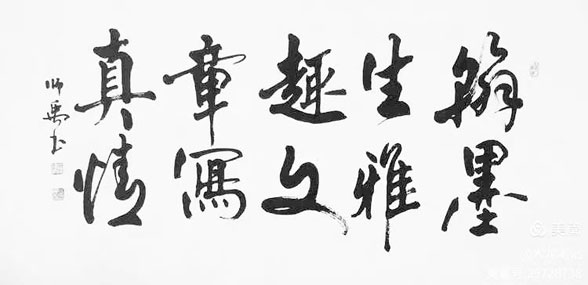 翰墨
生雅
趣文
章写
真情
师禹书